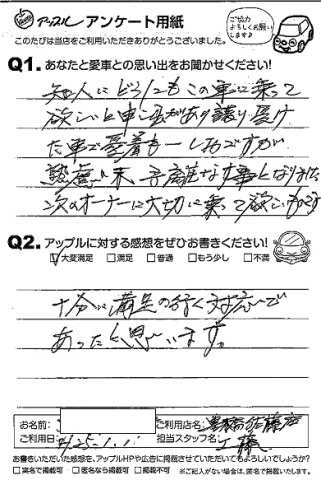 アップル アンケート用紙
このたびは当店をご利用いただきありがとうございました。
ご協力
よろしくお願い
します♪
Q1. あなたと愛車との思い出をお聞かせください!
知人にどうしてもこの車に乗って
欲しいと申し出があり譲り受け
た車で愛着も一しおですが
熟慮の末、手離な事となりました
次のオーナーに大切に乗って欲しいものです
Q2. アップルに対する感想をぜひお書きください!
☑大変満足 □満足 □普通 □もう少し □不満
十分に満足の行く対応で
あったと思います。
お名前:
ご利用店名: 豊橋佐藤店
ご利用日: H25.1.1. 担当スタッフ名: 工藤
お書きいただいた感想を、アップルHPや広告に掲載させていただいてもよろしいでしょうか?
□実名で掲載可 □匿名なら掲載可 □掲載不可 ※ご記入がない場合は、匿名で掲載いたします。